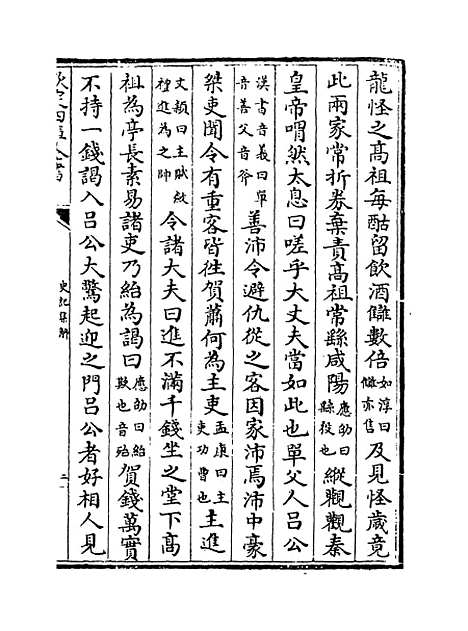 龍怪之高祖每酤留飲酒讎數倍如淳曰讎亦售及見怪歲竟
此兩家常折券棄責高祖常繇咸陽應劭曰繇役也縱觀觀秦
皇帝喟然太息曰嗟乎大丈夫當如此也單父人呂公
漢書音義曰單音善父音斧善沛令避仇從之客因家沛焉沛中豪
桀吏聞令有重客皆往賀蕭何為主吏孟康曰主吏功曹也主進
文穎曰主賦斂禮進為之帥令諸大夫曰進不滿千錢坐之堂下高
祖為亭長素易諸吏乃紿為謁曰應劭曰紿欺也音殆賀錢萬實
不持一錢謁入呂公大驚起迎之門呂公者好相人見
史記集解